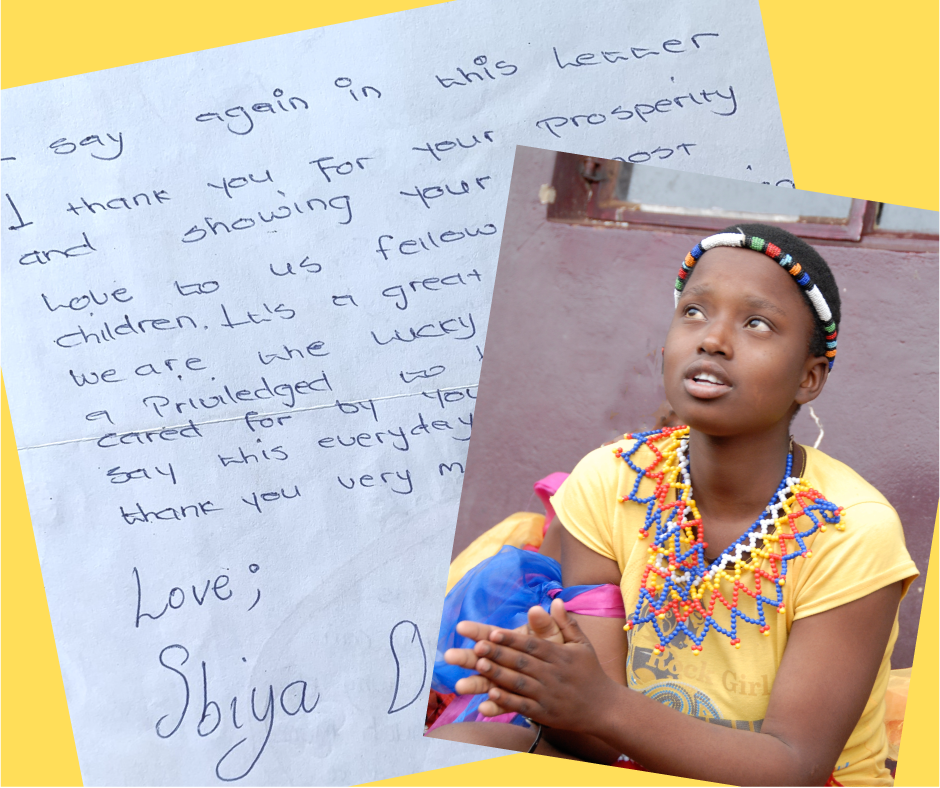 say again in this letter
I thank you For your prosperity
and showing your most
love to us fellow
children. It's a great
we are the lucky
a Priviledged to
cared for by you
say this everyday
thank you very m
Love;
Sbiya D
Rock Girl